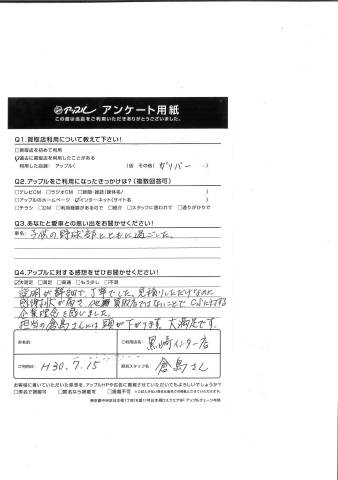 アップル アンケート用紙
この度は当店をご利用いただきありがとうございました。
Q1.買取店利用について教えて下さい!
□買取店を初めて利用
☑過去に買取店を利用したことがある
利用した店舗: アップル( )店 その他(ガリバー)
Q2.アップルをご利用になったきっかけは?(複数回答可)
□テレビCM □ラジオCM □新聞・雑誌(媒体名 )
□アップルのホームページ ☑インターネット(サイト名 )
□チラシ □DM □利用経験があるので □紹介 □スタッフに誘われて □通りがかりで
Q3.あなたと愛車との思い出をお聞かせください!
車名: 子供の野球部とともに過ごした。
Q4.アップルに対する感想をぜひお聞かせください!
☑大満足 □満足 □普通 □もう少し □不満
説明が詳細で、丁寧でした。見積りしただけなのに
感謝状が届き、他買取店ではないことでCSに対する
企業理念を感じました。
担当の倉島さんには頭が下がります。大満足です。
お名前:
ご利用店名: 黒崎インター店
ご利用日: H30.7.15
担当スタッフ名: 倉島さん
お客様に書いていただいた感想を、アップルHPや広告に掲載させていただいてもよろしいでしょうか?
□実名で掲載可 □匿名なら掲載可 □掲載不可